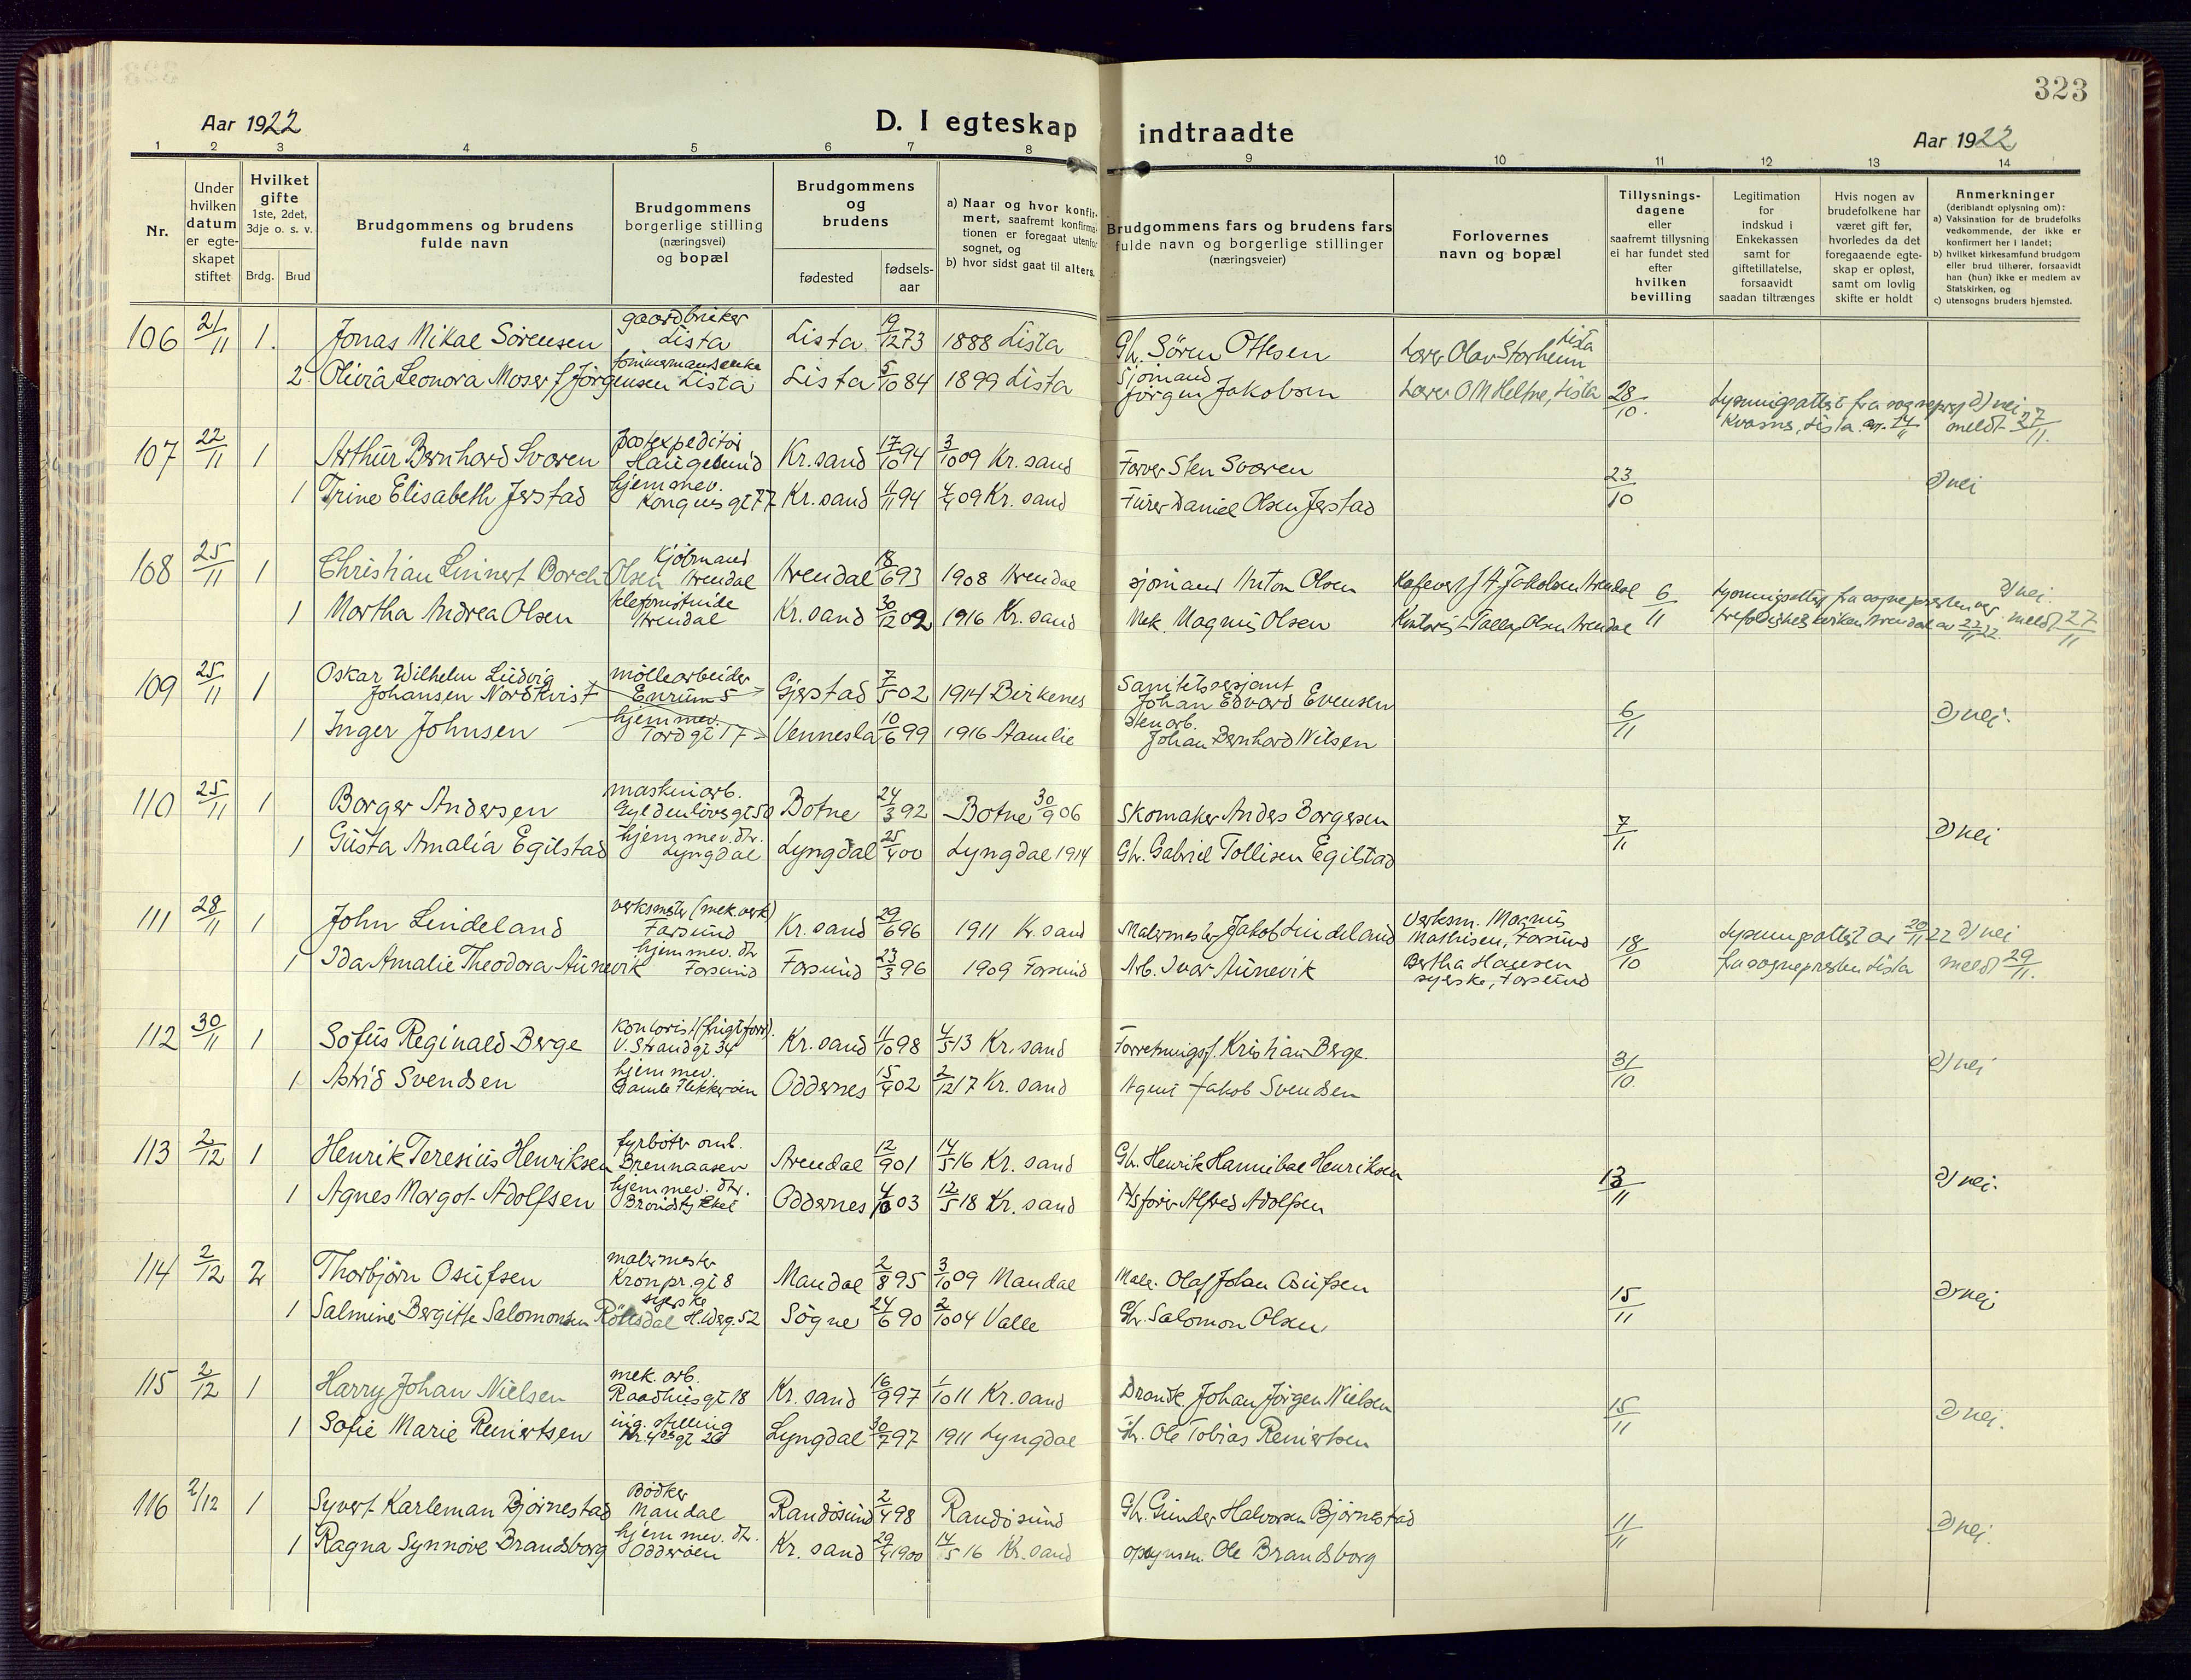 323
Aar 1922
D. I egteskap indtraadte
Aar 1922
1 2 3 4 5 6 7 8 9 10 11 12 13 14
Nr.
Under hvilken datum er egte-skapet stiftet
Hvilket gifte 1ste, 2det, 3dje o. s. v.
Brdg. Brud
Brudgommens og brudens fulde navn
Brudgommens borgerlige stilling (næringsvei) og bopæl
Brudgommens og brudens
fødested
fødsels-aar
a) Naar og hvor konfir-mert, saafremt konfirma-tionen er foregaat utenfor sognet, og
b) hvor sidst gaat til alters.
Brudgommens fars og brudens fars fulde navn og borgerlige stillinger (næringsveier)
Forlovernes navn og bopæl
Tillysnings-dagene eller saafremt tillysning ei har fundet sted efter hvilken bevilling
Legitimation for indskud i Enkekassen samt for giftetillatelse, forsaavidt saadan tiltrænges
Hvis nogen av brudefolkene har været gift før, hvorledes da det foregaaende egte-skap er opløst, samt om lovlig skifte er holdt
Anmerkninger (deriblandt oplysning om):
a) Vaksination for de brudefolks vedkommende, der ikke er konfirmert her i landet;
b) hvilket kirkesamfund brudgom eller brud tilhører, forsaavidt han (hun) ikke er medlem av Statskirken, og
c) utensogns bruders hjemsted.
106 21/11 1. Jonas Mikal Sørensen gaardbruker Lista Lista 19/12 73 1888 Lista Gbr. Søren Ottesen Lærer Olav Storheim Lista
2 Olivia Leonora Moser f Jørgensen tømmermandsenke Lista Lista 5/10 84 1899 Lista Sjømand Jørgen Jakobsen Lærer O M Heltne, Lista 28/10. Lysningsattest fra sognepr. Kvasnes, Lista 14/11 d) nei meldt 27/11.
107 22/11 1 Arthur Bernhard Svaren postexpeditør Haugesund Kr. sand 17/10 94 3/10 09 Kr. sand Farver Sten Svaren
1 Trine Elisabeth Jerstad hjemmev. Kongens gt 77 Kr. sand 11/11 94 4/4 09 Kr. sand Fører Daniel Olsen Jerstad 23/10 d) nei
108 25/11 1 Christian Linnert Borch Olsen Kjøbmand Arendal Arendal 18/6 93 1908 Arendal sjømand Anton Olsen J. A. Jakobsen Arendal 6/11
1 Martha Andrea Olsen telefonistinde Arendal Kr. sand 30/12 02 1916 Kr. sand Mek. Magnus Olsen Kontorist Tallag Olsen Arendal Lysningsattest fra sognepresten ved trefoldighetskirken Arendal av 22/11 22 d) nei. meldt 27/11
109 25/11 1 Oskar Wilhelm Ludvig Johansen Nordkvist møllearbeider Enrum 5 Gjerstad 7/5 02 1914 Birkenes Sanitetssersjant Johan Edvard Evensen
1 Inger Johnsen hjemmev. Tordgt 17 Vennesla 10/6 99 1916 Stenarb. Johan Bernhard Nilsen 6/11 d) nei.
110 25/11 1 Borger Andersen maskinarb. Gyldenløvsgt 50 Botne 24/3 92 Botne 30/9 06 Skomaker Anders Borgersen
1 Gusta Amalia Egilstad hjemmev. dtr. Lyngdal Lyngdal 25/4 00 Lyngdal 1914 Gbr. Gabriel Tollisen Egilstad 7/11 d) nei
111 28/11 1 John Lindeland verksmester (mek. verk) Farsund Kr. sand 29/6 96 1911 Kr. sand Malermester Jakob Lindeland Verksm. Magnus Mathisen, Farsund 18/10
1 Ida Amalie Theodora Aunevik hjemmev. dtr Farsund Farsund 23/3 96 1909 Farsund Arb. Ivar Aunevik Bertha Hansen syerske, Farsund Lysningsattest av 20/11 22 fra sognepresten Lista d) nei meldt 29/11.
112 30/11 1 Sofus Reginald Berge Kontorist (frugtforr.) V. Strandgt 34 Kr. sand 11/10 98 4/5 13 Kr. sand Forretningsf. Kristian Berge.
1 Astrid Svendsen hjemmev. Gamle Flekkerøen Oddernes 15/4 02 2/12 17 Kr. sand Agent Jakob Svendsen 31/10. d) nei
113 2/12 1 Henrik Teresius Henriksen fyrbøter omb. Brennaasen Arendal 12/9 01 14/5 16 Kr. sand Gbr. Henrik Hannibal Henriksen
1 Agnes Margot Adolfsen hjemmev. dtr. Oddernes 4/10 03 12/5 18 Kr. sand Alfred Adolfsen 13/11 d) nei.
114 2/12 2 Thorbjørn Osufsen malermester Kronpr. gt 8 Mandal 2/8 95 3/10 09 Mandal Maler. Olaf Johan Osufsen
1 Salmine Bergitte Salomonsen Røllsdal syerske H. Werg. 52 Søgne 24/6 90 2/10 04 Valle Gbr. Salomon Olsen 15/11 d) nei
115 2/12 1 Harry Johan Nielsen mek. arb. Raadhusgt 18 Kr. sand 16/9 97 1/10 11 Kr. sand Johan Jørgen Nielsen
1 Sofie Marie Reinertsen ing. stilling Kr. 4des gt 26 Lyngdal 30/7 97 1911 Lyngdal Gbr. Ole Tobias Reinertsen 15/11 d) nei.
116 2/12 1 Syvert Karleman Bjørnestad Bødker Mandal Randøsund 2/4 98 Randøsund Gbr. Gunder Halvorsen Bjørnestad
1 Ragna Synnøve Brandsborg hjemmev. dtr. Odderøen Kr. sand 29/4 1900 14/5 16 Kr. sand opsynsm. Ole Brandsborg 11/11 d) nei.